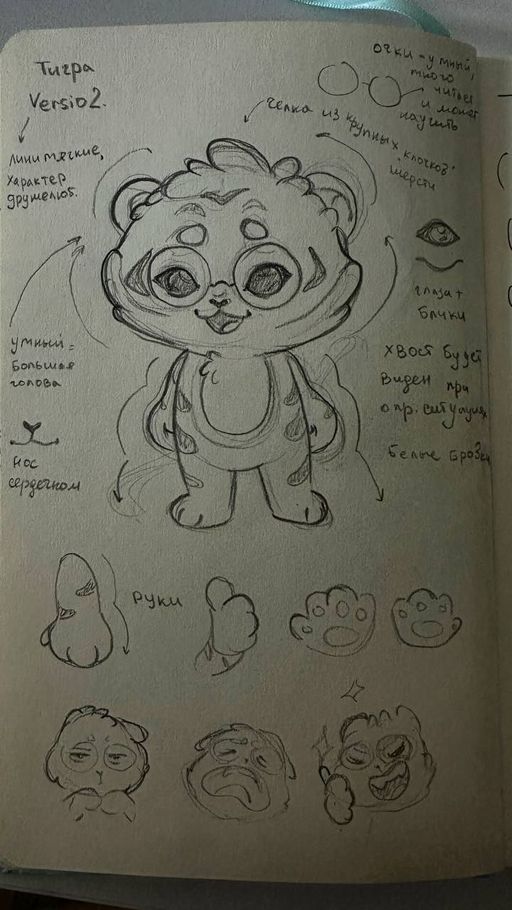 Тигра
Versio 2.
Линии мягкие,
характер
дружелюб.
очки - умный,
много
читает
и может
научить
челка из крупных "клочков"
шерсти
глаза +
блики
умный =
большая
голова
хвост будет
виден при
опр. ситуациях
белые брови
нос
сердечком
Руки